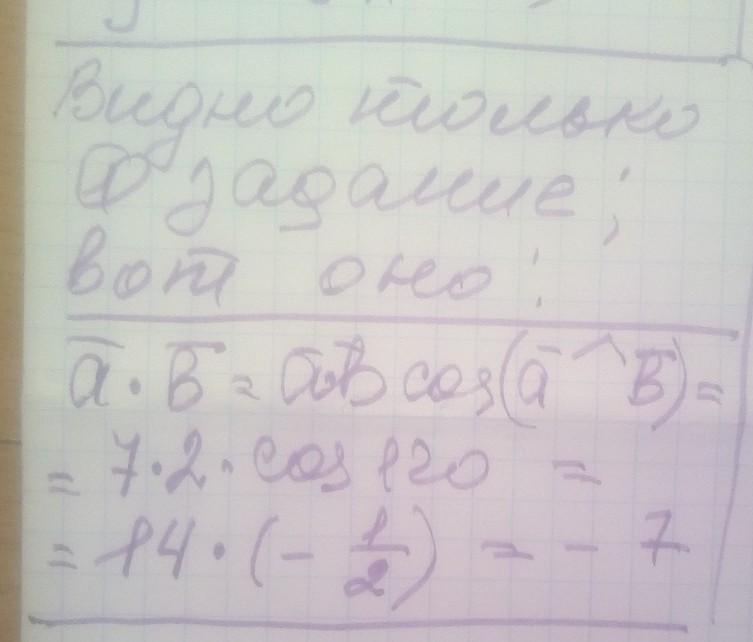 Видно только
① задание;
вот оно:
a̅ · B̅ = a̅ B̅ cos(a̅ ^ B̅) =
= 7·2· cos 120 =
= 14·(- 1/2) = - 7